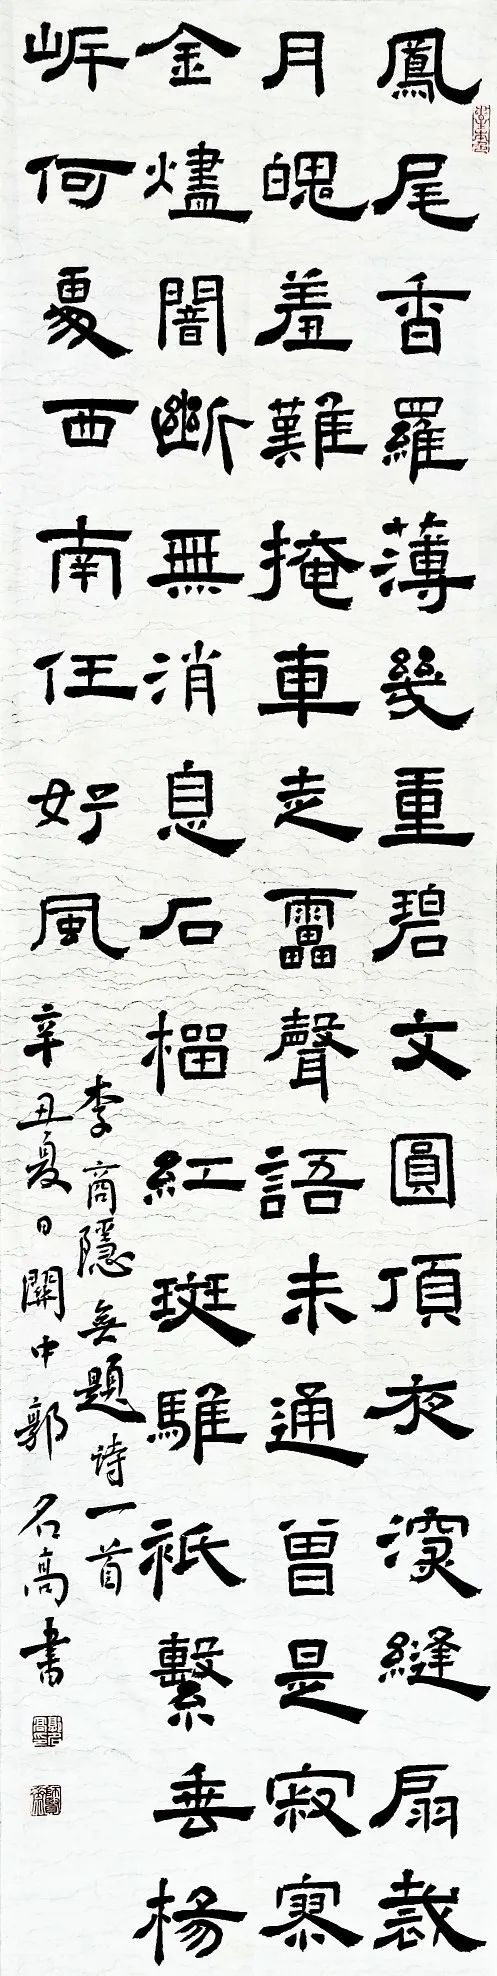 鳳尾香羅薄幾重碧文圓頂夜深縫扇裁
月魄羞難掩車走靁聲語未通曾是寂寥
金燼闇斷無消息石榴紅斑騅祇繫垂楊
岸何處西南任好風
李商隱無題詩一首
辛丑夏日關中郭名高書